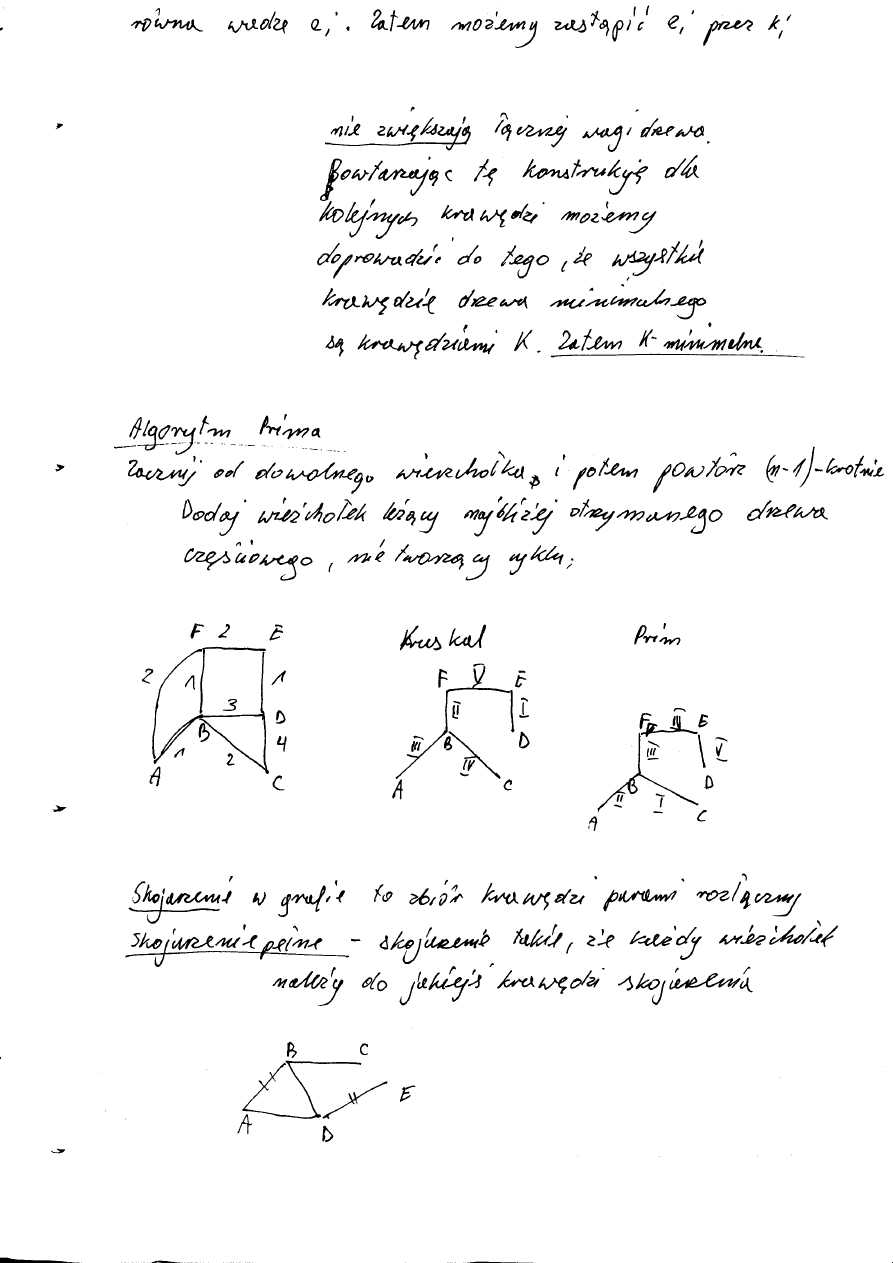 równa wadze e_i. Zatem możemy zastąpić e_i przez k_i
nie zwiększają łącznej wagi drzewa.
Powtarzając tę konstrukcję dla
kolejnych krawędzi możemy
doprowadzić do tego, że wszystkie
krawędzie drzewa minimalnego
są krawędziami K. Zatem K-minimalne.
Algorytm Prima
Zacznij od dowolnego wierzchołka, i potem powtórz (n-1)-krotnie
Dodaj wierzchołek leżący najbliżej otrzymanego drzewa
częściowego, nie tworzący cyklu;
F 2 E
2 1 3 1
B D
A 1 2 4
C
Kruskal
F V E
II I
B D
III IV
A C
Prim
F IV E
III V
B D
II I
A C
Skojarzenie w grafie to zbiór krawędzi parami rozłączny
Skojarzenie pełne - skojarzenie takie, że każdy wierzchołek
należy do jakiejś krawędzi skojarzenia
B C
A D E